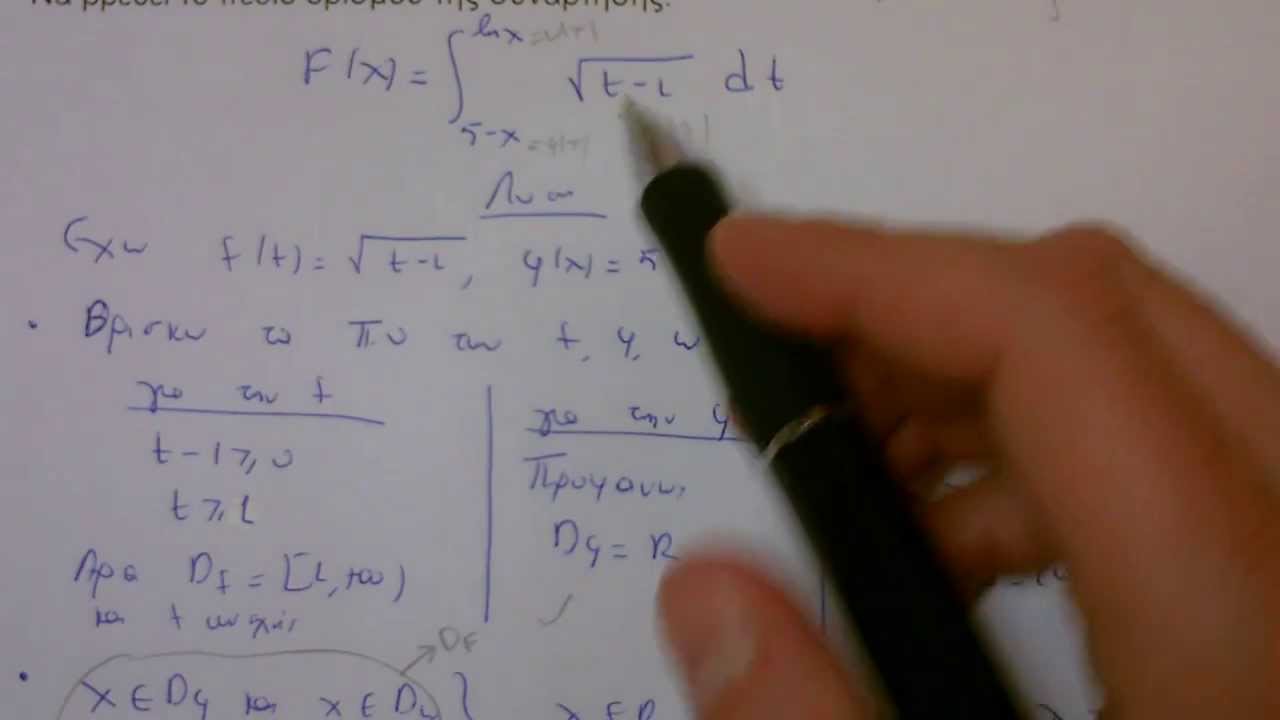 Να βρεθεί το πεδίο ορισμού της συνάρτησης:
F(x) = ∫_{5-x}^{lnx} √(t-1) dt
Λύση
Έχω f(t) = √(t-1), φ(x) = 5
• Βρίσκω το ΠΟ των f, φ, ω
για την f
t-1 ≥ 0
t ≥ 1
Άρα D_f = [1, +∞)
και f συνεχής
για την φ
Προφανώς
D_φ = R
✓
D_F
• x ∈ D_φ και x ∈ D_ω }